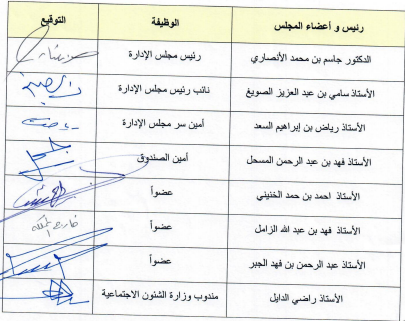 رئيس و أعضاء المجلس الوظيفة التوقيع
الدكتور جاسم بن محمد الأنصاري رئيس مجلس الإدارة
الأستاذ سامي بن عبد العزيز الصويغ نائب رئيس مجلس الإدارة
الأستاذ رياض بن إبراهيم السعد أمين سر مجلس الإدارة
الأستاذ فهد بن عبد الرحمن المسحل أمين الصندوق
الأستاذ احمد بن حمد الخنيني عضواً
الأستاذ فهد بن عبد الله الزامل عضواً خارج المملكة
الأستاذ عبد الرحمن بن فهد الجبر عضواً
الأستاذ راضي الدايل مندوب وزارة الشئون الاجتماعية